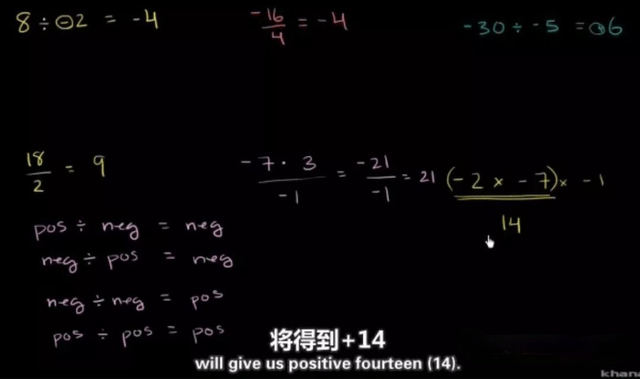 8 ÷ -2 = -4
-16/4 = -4
-30 ÷ -5 = +6
18/2 = 9
-7 · 3 / -1 = -21 / -1 = 21
(-2 x -7) x -1
14
pos ÷ neg = neg
neg ÷ pos = neg
neg ÷ neg = pos
pos ÷ pos = pos
将得到+14
will give us positive fourteen (14).
khan